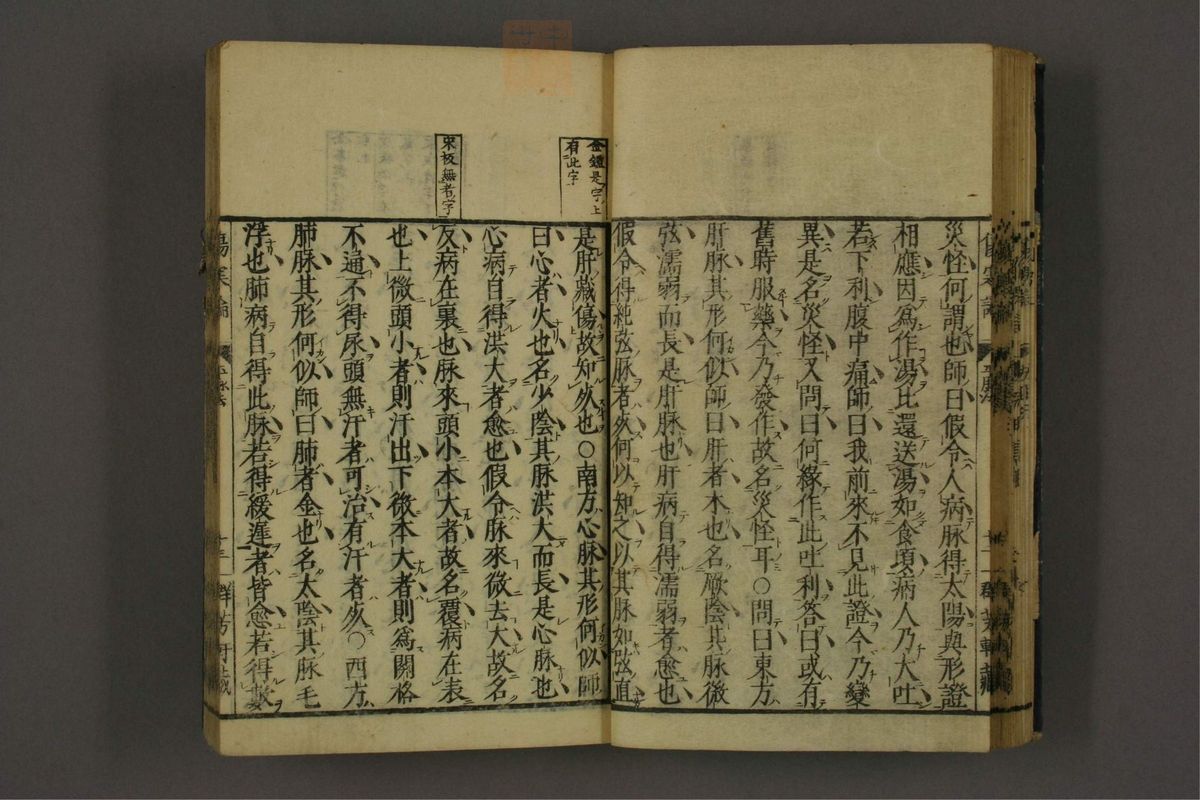 災怪何謂也師曰假令人病脉得太陽與形證
相應因爲作湯比還送湯如食頃病人乃大吐
若下利腹中痛師曰我前來不見此證今乃變
異是名災怪又問曰何緣作此吐利答曰或有
舊時服藥今乃發作故名災怪耳○問曰東方
肝脉其形何似師曰肝者木也名厥陰其脉微
弦濡弱而長是肝脉也肝病自得濡弱者愈也
假令得純弦脉者死何以知之以其脉如弦直
金鑑是字上
有此字
是肝藏傷故知死也○南方心脉其形何似師
曰心者火也名少陰其脉洪大而長是心脉也
心病自得洪大者愈也假令脉來微去大故名
宋板無者字
反病在裏也脉來頭小本大者故名覆病在表
也上微頭小者則汗出下微本大者則爲關格
不通不得尿頭無汗者可治有汗者死○西方
肺脉其形何似師曰肺者金也名太陰其脉毛
浮也肺病自得此脉若得緩遲者皆愈若得數
傷寒論
十三